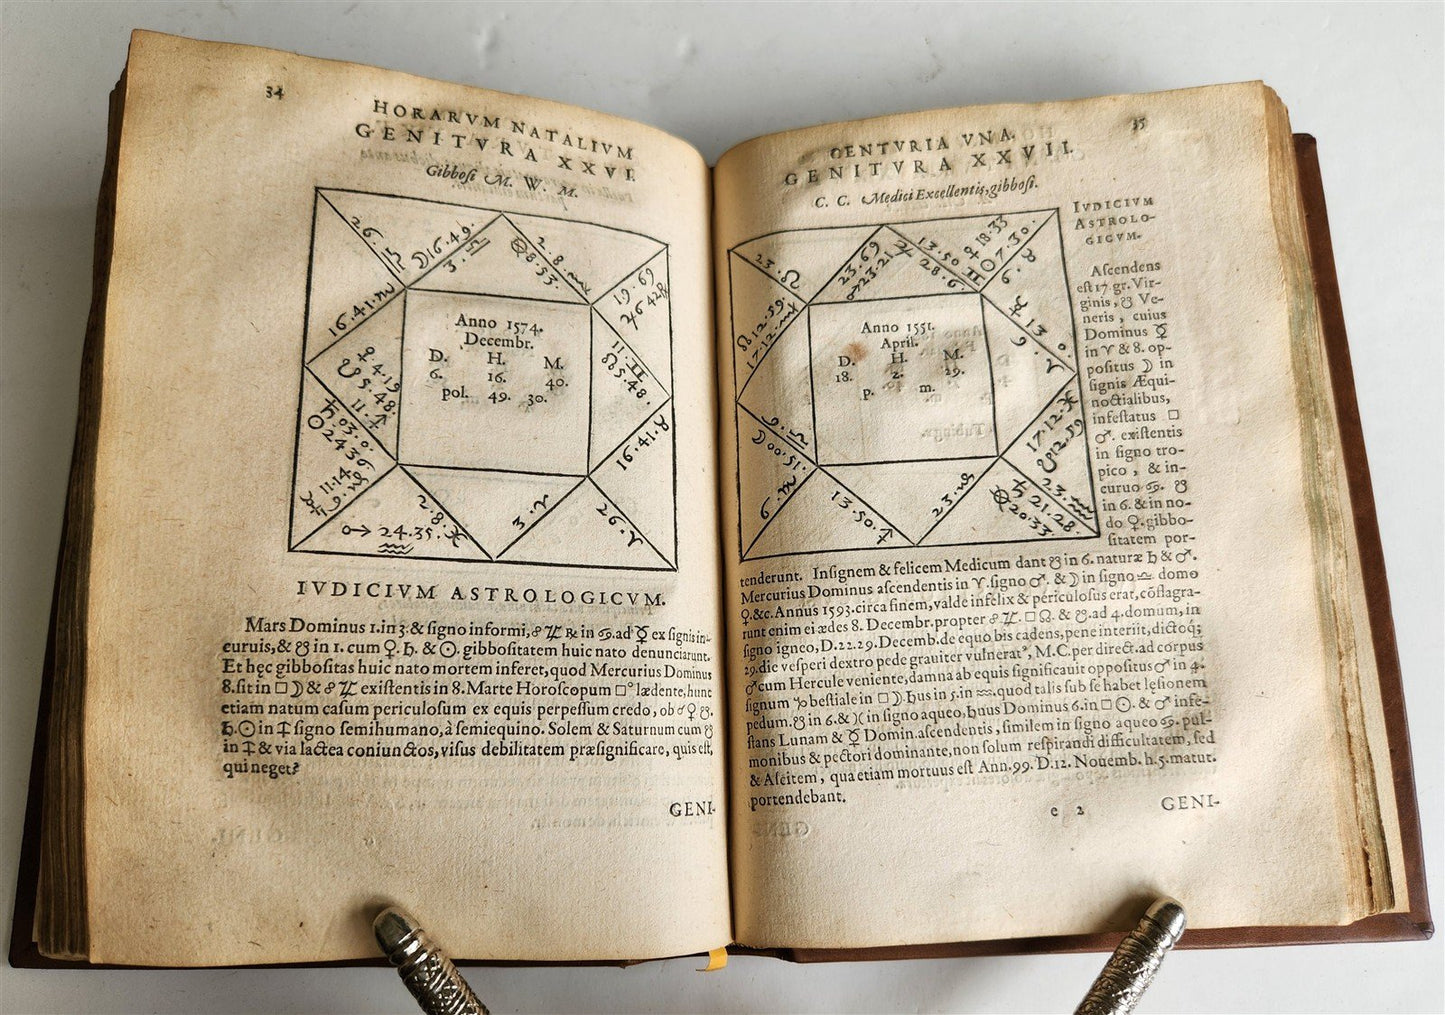 34
HORARVM NATALIVM
GENITVRA XXVI.
Gibbosi M. W. M.
26. ♎
☽16.49.
3. ♎
8.53.
2.8.♏
19.69
♃6 42℞
16.41.♏
11.♊
☊5.48.
♀.4.19
☋5.48.
11.♐
♄.03.0.
☉24.36
11.14.
9.♑
16.41.♉
2.8.♓
♂ 24.35.
♒
3.♈
26.♈
Anno 1574.
Decembr.
D. H. M.
6. 16. 40.
pol. 49. 30.
IVDICIVM ASTROLOGICVM.
Mars Dominus 1. in 3. & signo informi, ☍ ♃ ℞ in ♋. ad ☿ ex signis in-
curuis, & ☋ in 1. cum ♀. ♄. & ☉. gibbositatem huic nato denunciarunt.
Et hęc gibbositas huic nato mortem inferet, quod Mercurius Dominus
8. sit in □ ☽ & ☍ ♃ existentis in 8. Marte Horoscopum □° lædente, hunc
etiam natum casum periculosum ex equis perpessum credo, ob ☌ ♀ ☋.
♄. ☉ in ♐ signo semihumano, à semiequino. Solem & Saturnum cum ☋
in ♐ & via lactea coniunctos, visus debilitatem præsignificare, quis est,
qui neget?
GENI-
35
CENTVRIA VNA.
GENITVRA XXVII.
C. C. Medici Excellentis, gibbosi.
23.♌
23.69
♂23.21
♃ 13.50
28.6.
♊
♀ 18.33
☉7.30.
6.♉
☊12.59.
17.12.♍
☿ 13. 0.
9. ♈
9.♎
☽00.51.
17.12.♓
☋12.59
6.♏
13.50.♐
23.♑
23.♒
♄ 21.28.
20.33.
Anno 1551.
April.
D. H. M.
18. 2. 29.
p. m.
IVDICIVM
ASTROLO-
GICVM.
Ascendens
est 17. gr. Vir-
ginis, ☋ Ve-
neris, cuius
Dominus ☿
in ♈ & 8. op-
positus ☽ in
signis Æqui-
noctialibus,
infestatus □
♂. existentis
in signo tro-
pico, & in-
curuo ♋. ☋
in 6. & in no-
do ♀. gibbo-
sitatem por-
tenderunt. Insignem & felicem Medicum dant ☋ in 6. naturæ ♄ & ♂.
Mercurius Dominus ascendentis in ♈. signo ♂. & ☽ in signo ♎ domo
♀. &c. Annus 1593. circa finem, valde infelix & periculosus erat, cōflagra-
runt enim ei ædes 8. Decembr. propter ☍ ♃. □ ☊. & ☋. ad 4. domum, in
signo igneo, D. 22. 29. Decemb. de equo bis cadens, pene interiit, dictoq;
29. die vesperi dextro pede grauiter vulneratꝰ, M. C. per direct. ad corpus
♂ cum Hercule veniente, damna ab equis significauit oppositus ♂ in 4.
signum ♑ bestiale in □ ☽. ♄ us in 5. in ♒. quod talis sub se habet lęsionem
pedum. ☋ in 6. & )( in signo aqueo, huius Dominus 6. in □ ☉. & ♂ infe-
stans Lunam & ☿ Domin. ascendentis, similem in signo aqueo ♋. pul-
monibus & pectori dominante, non solum respirandi difficultatem, sed
& Aseitem, qua etiam mortuus est Ann. 99. D. 12. Nouemb. h. 5. matut.
portendebant.
e 2
GENI-